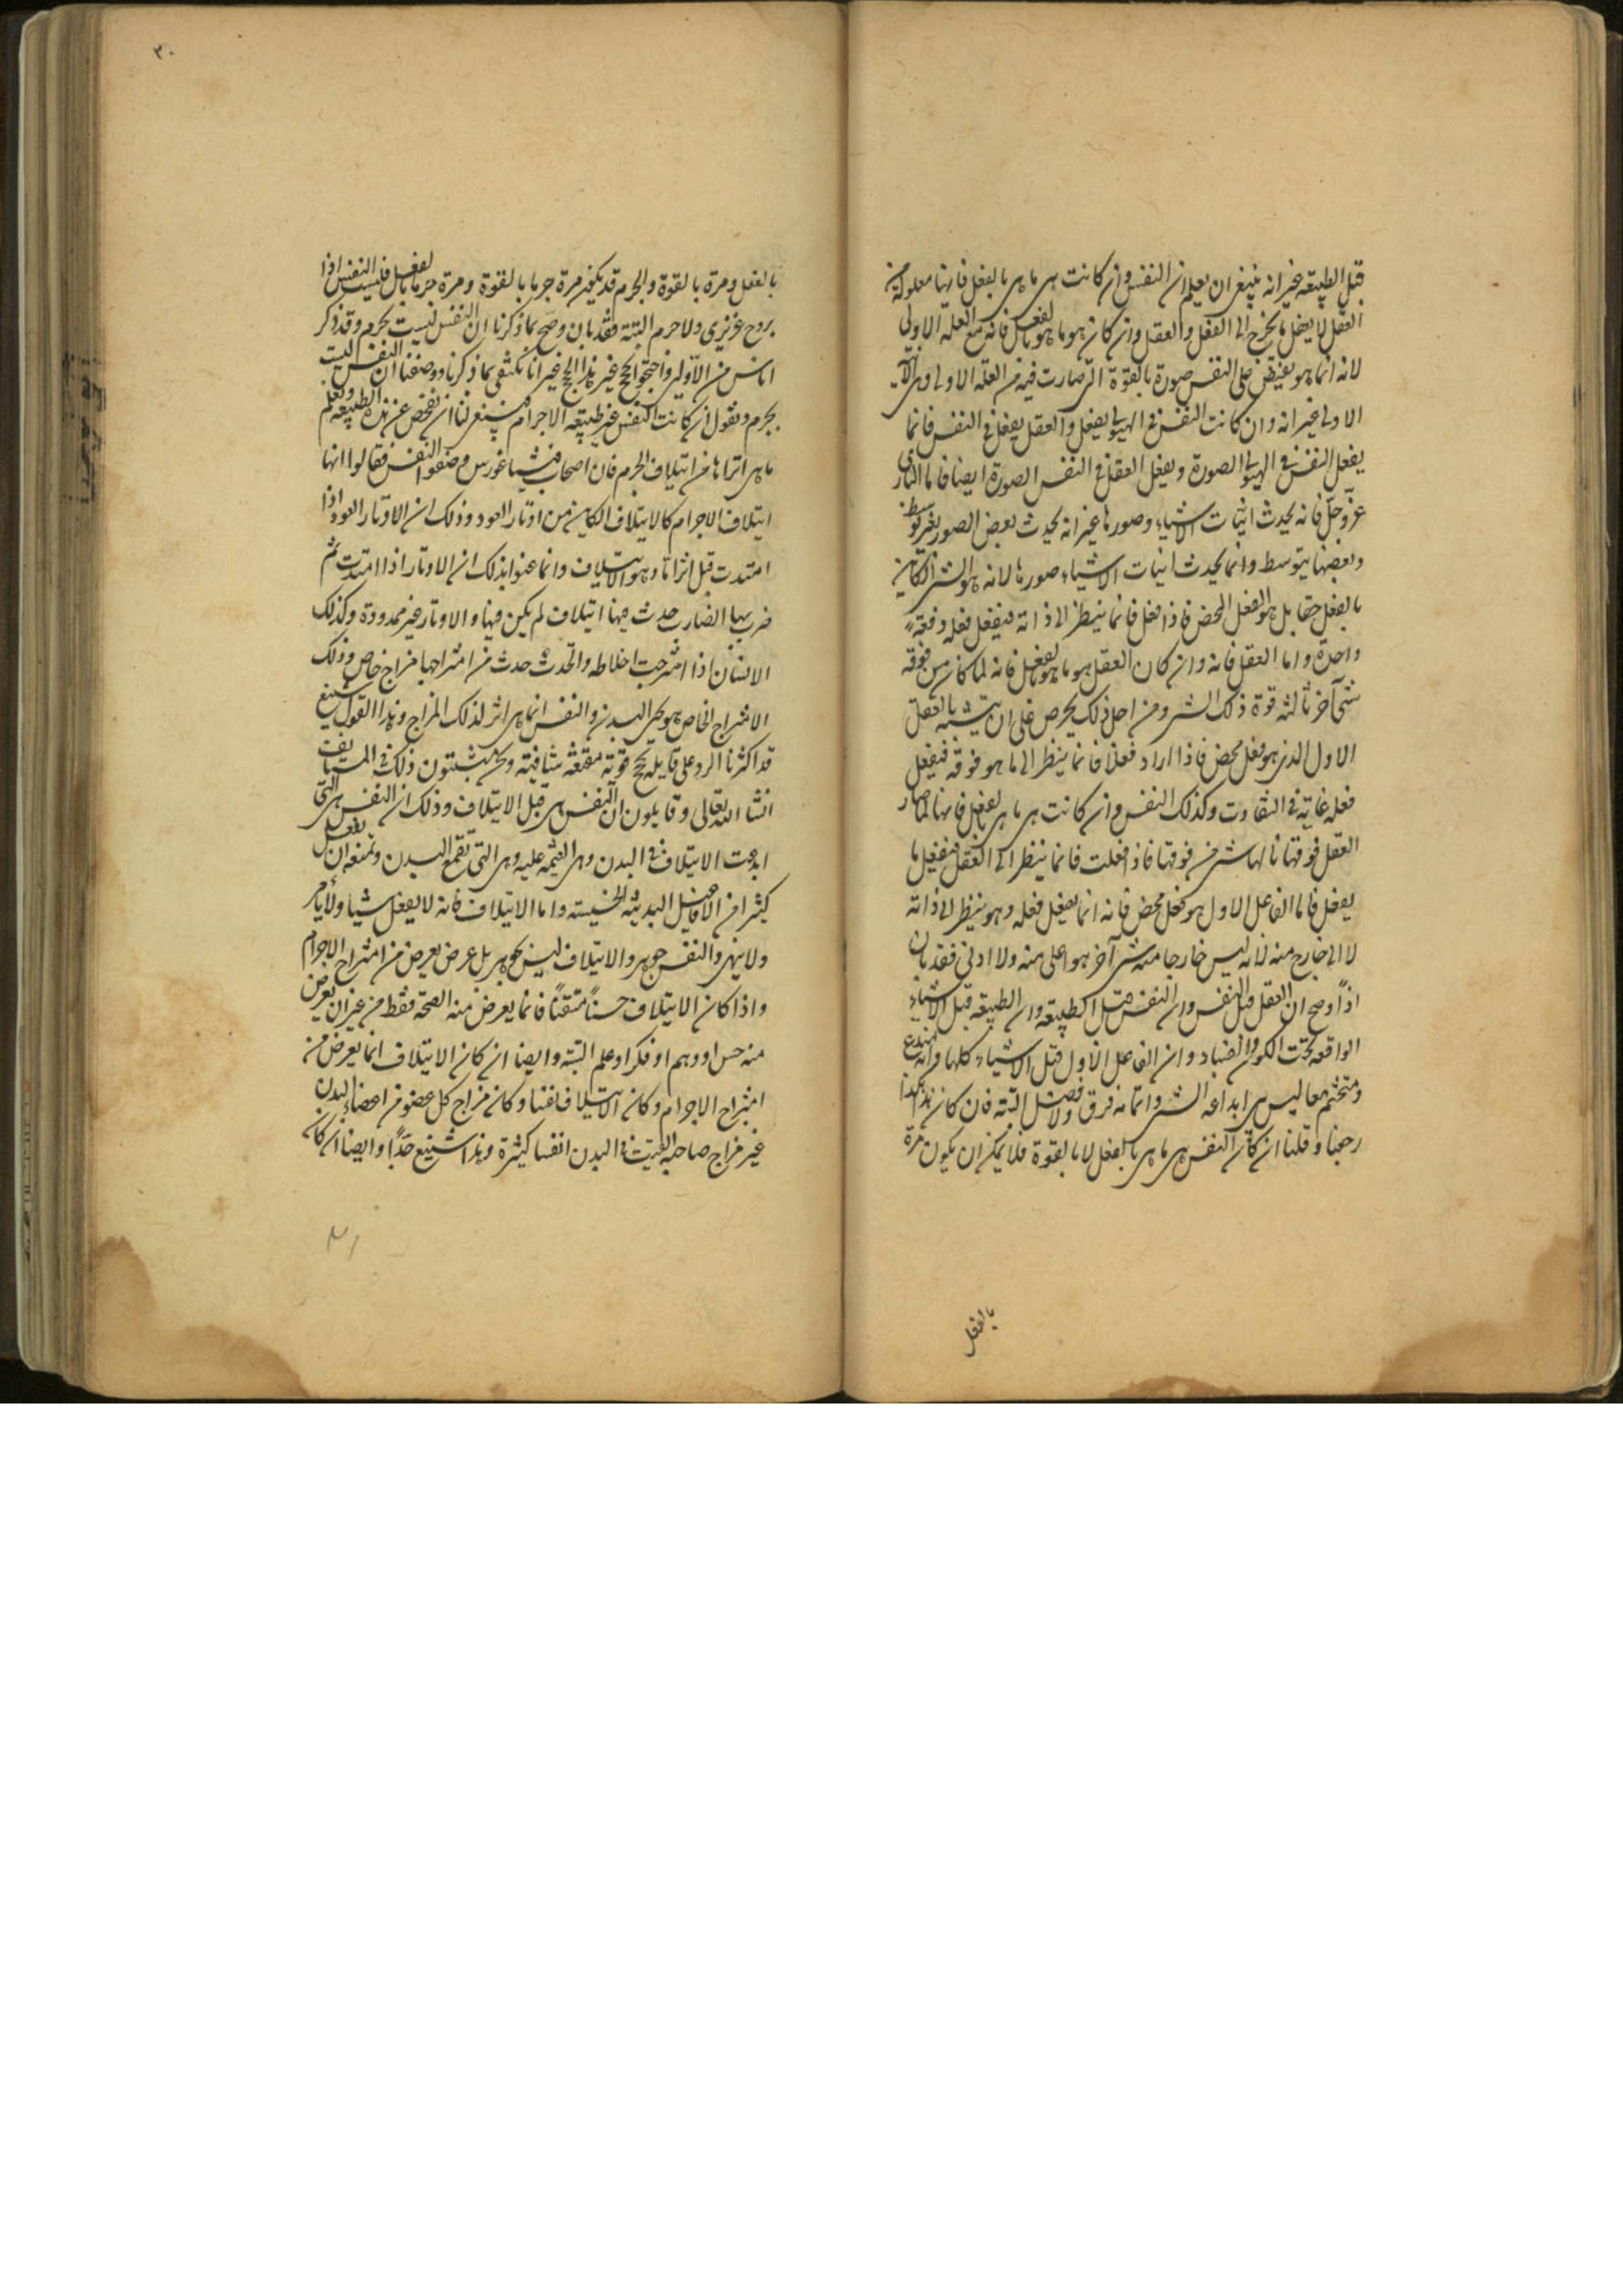 قبل الطبيعة غير انه ينبغى ان يعلم ان النفس وان كانت هى ما هى بالفعل فانها معلولة من
العقل لا يفعل ما يخرج الى الفعل والعقل وان كان هو ما هو بالفعل فانه مع العلة الاولى
لانه انما هو يفيض على النفس صورة بالقوة التى صارت فيه من العلة الاولى وهى الانية
الاولى غير انه وان كانت النفس فى الهيولى يفعل والعقل يفعل فى النفس فانما
يفعل النفس فى الهيولى الصورة ويفعل العقل فى النفس الصورة ايضا فاما البارى
عز وجل فانه يحدث انيات الاشياء وصورها غير انه يحدث بعض الصور بغير توسط
وبعضها بتوسط وانما يحدث انيات الاشياء وصورها لانه هو الشى الكاين
بالفعل حقا بل هو الفعل المحض فاذا فعل فانما ينظر الى ذاته فيفعل فعله دفعة
واحدة واما العقل فانه وان كان العقل هو ما هو بالفعل فانه لما كان من فوقه
شئ آخر نالته قوة ذلك الشى ومن اجل ذلك يحرص على ان يتشبه بالفعل
الاول الذى هو فعل محض فاذا اراد فعلا فانما ينظر الى ما هو فوقه فيفعل
فعله غاية فى النقاوت وكذلك النفس وان كانت هى ما هى بالفعل فانها لما صار
العقل فوقها نالها شى من قوتها فاذا فعلت فانما ينظر الى العقل فيفعل ما
يفعل فاما الفاعل الاول هو فعل محض فانه انما يفعل فعله وهو ينظر الى ذاته
لا الى خارج منه لانه ليس خارجا منه شى آخر هو اعلى منه ولا ادنى فقد بان
اذا وصح ان العقل قبل النفس وان النفس قبل الطبيعة وان الطبيعة قبل الاشياء
الواقعة تحت الكون والفساد وان الفاعل الاول قبل الاشياء كلها وانه مبدع
ومتمم معا ليس بين ابداعه الشى واتمامه فرق ولا فصل البتة فان كان هذا هكذا
رجعنا وقلنا ان كان النفس هى ما هى بالفعل لا بالقوة فلا يمكن ان يكون مرة
بالفعل
٣٠
بالفعل ومرة بالقوة والجرم قد يكون مرة جرما بالقوة ومرة جرما بالفعل فليست النفس اذا
بروح غريزى ولا جرم البتة فقد بان وصح بما ذكرنا ان النفس ليست بجرم وقد ذكر
اناس من الاولين واحتجوا بحجج غير هذا الحجج غير انا نكتفى بما ذكرنا ووصفنا ان النفس ليست
بجرم ونقول ان كانت النفس غير طبيعة الاجرام فينبغى لنا ان نفحص عن هذه الطبيعة ونعلم
ما هى اتراها من ايتلاف الجرم فان اصحاب فيثاغورس وصفوا النفس فقالوا انها
ايتلاف الاجرام كالايتلاف الكاين من اوتار العود وذلك ان الاوتار العود اذا
امتدت قبل اثرا ما وهو الايتلاف وانما عنوا بذلك ان الاوتار اذا امتدت ثم
ضرب بها الضارب حدث فيها ايتلاف لم يكن فيها والاوتار غير ممدودة وكذلك
الانسان اذا امتزجت اخلاطه واتحدت حدث من امتزاجها مزاج خاص وذلك
الامتزاج الخاص هو يحيى البدن والنفس انما هى اثر لذلك المزاج وهذا القول شنيع
قد اكثرنا الرد على قايله بحجج قوية مقنعة شافية ونحن مثبتون ذلك فى المستانف
انشاء الله تعالى وقايلون ان النفس هى قبل الايتلاف وذلك ان النفس هى التى
ابدعت الايتلاف فى البدن وهى القيمة عليه وهى التى تقمع البدن وتمنعه ان يفعل
كثيرا من الافاعيل البدنية الخسيسة واما الايتلاف فانه لا يفعل شيئا ولا يامر
ولا ينهى والنفس جوهر والايتلاف ليس بجوهر بل عرض يعرض من امتزاج الاجرام
واذا كان الايتلاف حسنا متقنا فانما يعرض منه الصحة فقط من غير ان يعرض
منه حس او وهم او فكر او علم البتة وايضا ان كان الايتلاف انما يعرض من
امتزاج الاجرام وكان الايتلاف نفسا وكان مزاج كل عضو من اعضاء البدن
غير مزاج صاحبه الفيت فى البدن انفسا كثيرة وهذا شنيع جدا وايضا ان كان